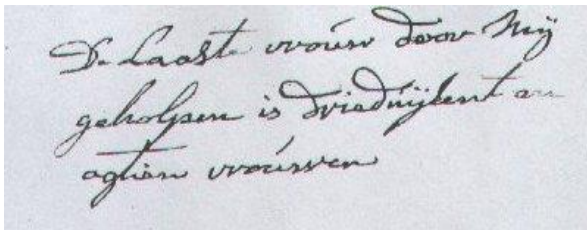 De Laast vrouw door Mij
geholpen is driedúijsent an
agtien vrouwen